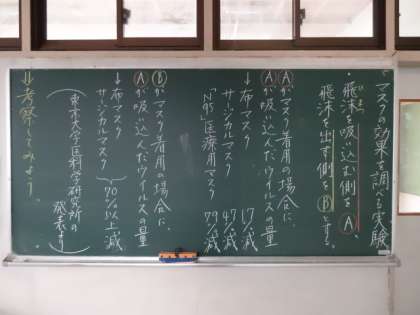 マスクの効果を調べる実験
・飛沫を吸い込む側をⒶ
飛沫を出す側をⒷとする。
Ⓐがマスク着用の場合に、
Ⓐが吸い込んだウイルスの量
↓布マスク 17%減
サージカルマスク 47%減
「N95」医療用マスク 79%減
Ⓑがマスク着用の場合に、
Ⓐが吸い込んだウイルスの量
↓布マスク
サージカルマスク 70%以上減
(東京大学医科学研究所の
発表より)
⇓考察してみよう。